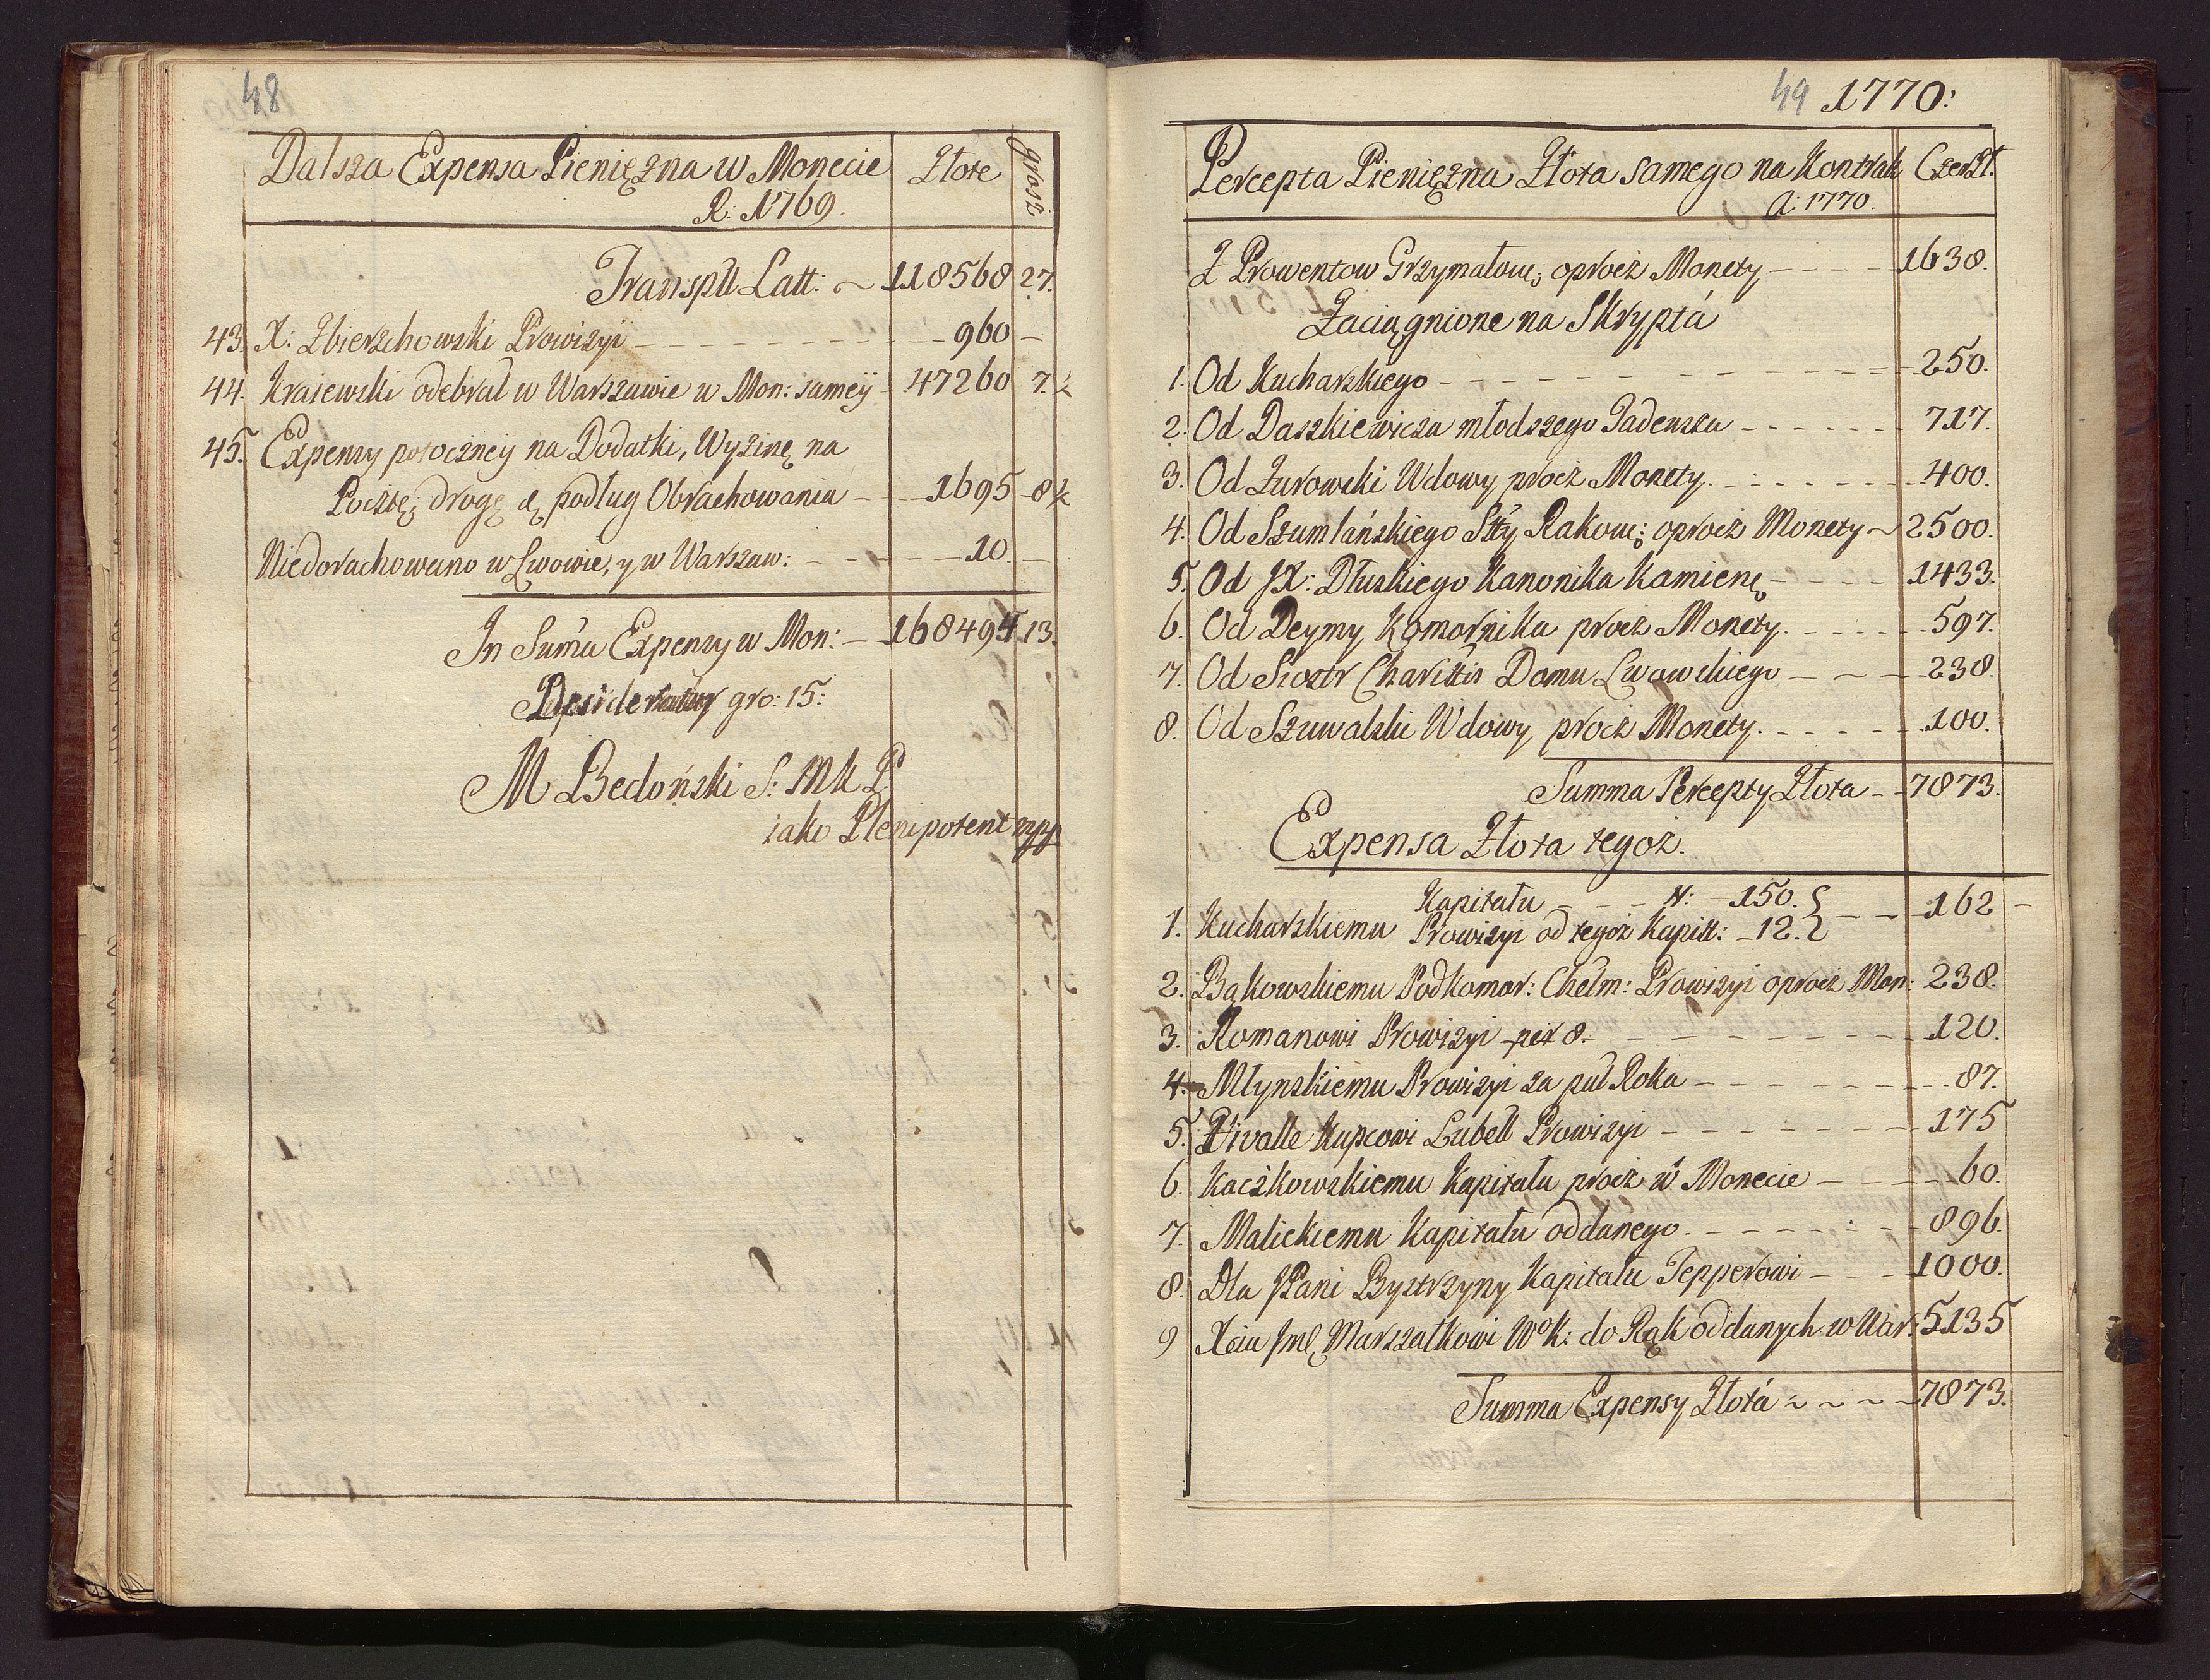 48
Dalsza Expensa Pieniężna w Monecie Złote grosz
R: 1769.
Transpłt Latt: ~ 118568 27.
43. X: Zbierzchowski Prowizyi 960 –
44. Kraiewski odebrał w Warszawie w Mon: sameÿ 47260 7. ½
45. Expensy potoczneÿ na Dodatki, Wyżinę na
Pocztę, drogę ę podług Obrachowania 1695 8 ½
Niedorachowano w Lwowie, y w Warszaw: 10. –
In Summa Expensy w Mon: 168494 13.
Desideratur gro: 15:
M Bedoński S: MkP
iako Plenipotent mpp
49 1770:
Percepta Pieniężna Złota samego na Kontrak Czer Zł.
A: 1770.
Z Prowentow Grzymałow: oprocż Monety 1638.
Zaciągnione na Skryptá
1. Od Kucharskiego 250.
2. Od Daszkiewicza młodszego Tadeusza 717.
3. Od Żurowski Wdowy procż Monety. 400.
4. Od Szumlańskiego Stty Rakow: oprocż Monety ~ 2500.
5. Od JX: Dłuskiego Kanonika Kamienę 1433.
6. Od Deymy Komornika procż Monety. 597.
7. Od Siostr Charittis Domu Lwowskiego 238.
8. Od Szuwalski Wdowy procż Monety. 100.
Summa Percepty Złota 7873.
Expensa Złota tegoż.
Kapitału N: 150.
1. Kucharskiemu Prowizyi od tegoż Kapitt: 12. 162 –
2. Bąkowskiemu Podkomor: Chełm: Prowizyi oprocż Mon: 238.
3. Romanowi Prowizyi per 8. 120.
4. Młynskiemu Prowizyi za puł Roku 87.
5. Rivalle Kupcowi Lubell Prowizyi 175
6. Kaczkowskiemu Kapitału procż w Monecie 60.
7. Malickiemu Kapitału oddanego. 896.
8. Dla JPani Bystrzyny Kapitału Tepperowi 1000.
9 Xciu Jmę Marszałkowi WoK: do Rąk oddanych w War: 5135
Summa Expensy Złotá ~ ~ ~ ~ 7873.